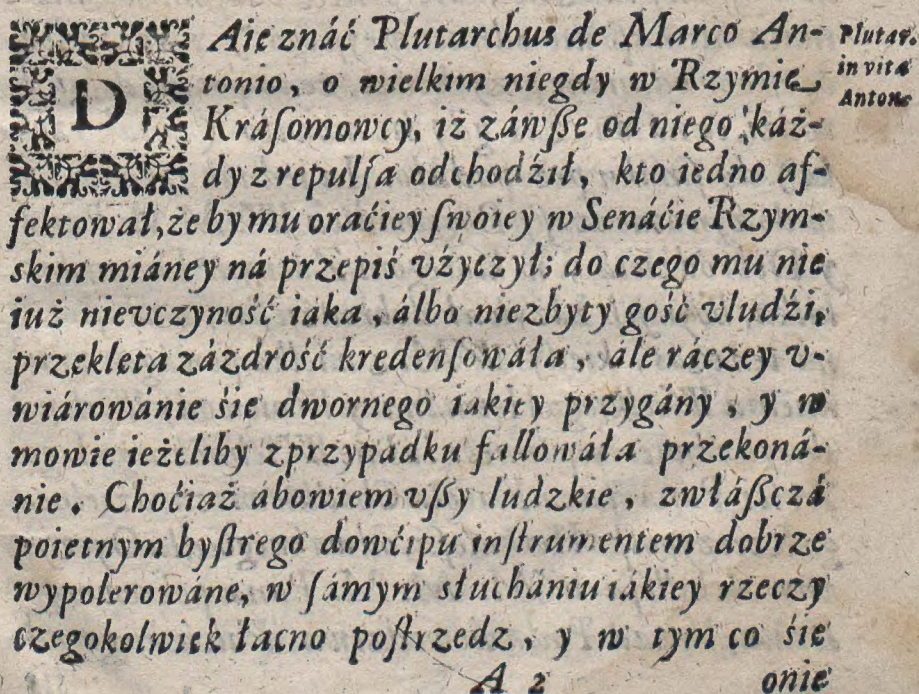 DAie znáć Plutarchus de Marco An-
tonio, o wielkim niegdy w Rzymie
Kráſomowcy, iż záwſße od niego káż-
dy z repulſą odchodźił, kto iedno af-
fektował, że by mu oráćiey ſwoiey w Senáćie Rzym-
skim miáney ná przepiś vżyczył; do czego mu nie
iuż nievczyność iaka, álbo niezbyty gość vludźi,
przeklęta zázdrość kredenſowáłá, ále ráczey v-
wiárowánie śie dwornego iakiey przygány, y w
mowie ieżeliby z przypadku fallowáła przekoná-
nie. Choćiaż ábowiem vſßy ludzkie, zwłáſßczá
poietnym byſtrego dowćipu inſtrumentem dobrze
wypolerowáne, w ſámym słuchániu iákiey rzeczy
czegokolwiek łacno poſtrzedz, y w tym co śie
A 2 onie
Plutar.
in vita
Anton.